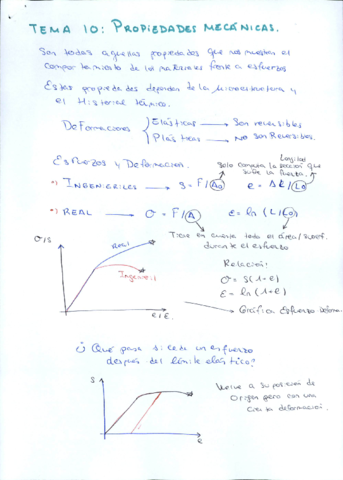 TEMA 10: PROPIEDADES MECÁNICAS.
Son todas aquellas propiedades que nos muestran el
comportamiento de los materiales frente a esfuerzos
Estas propiedades dependen de la Microestructura y
el Historial térmico.
DeFormaciones
Elásticas → Son reversibles
Plásticas → No son Reversibles.
Esfuerzos y Deformación.
Solo considera la sección que
sufre la fuerza.
Longitud
INGENIERILES → s = F/A₀ e = ΔL/L₀
REAL → σ = F/A ε = ln(L/L₀)
Tiene en cuenta todo el área/superf.
durante el esfuerzo
σ/s
Real
Ingenieril
e/ε.
Relación:
σ = s(1+e)
ε = ln(1+e)
Gráfica Esfuerzo
¿Qué pasa si cede un esfuerzo
después del límite elástico?
S
e
Vuelve a su posición de
origen pero con una
cierta deformación.